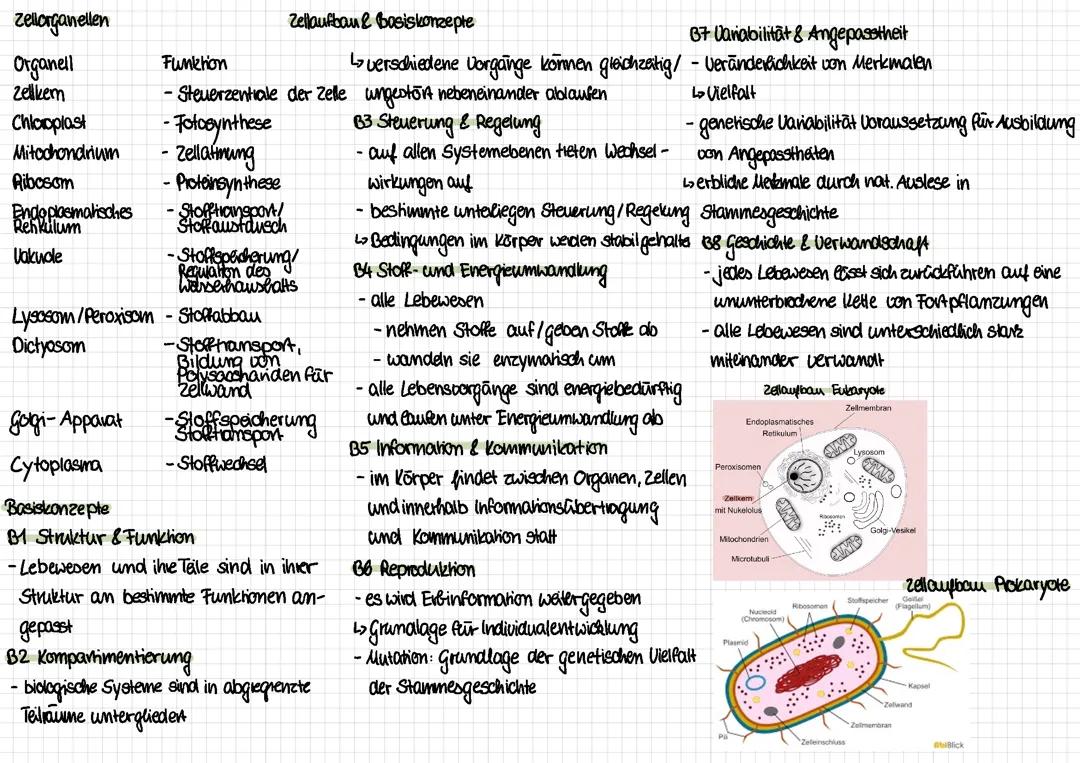 Zellaufbau & Basiskonzepte
Zellorganellen
Organell Funktion
Zellkern - Steuerzentrale der Zelle
Chloroplast - Fotosynthese
Mitochondrium - Zellatmung
Ribosom - Proteinsynthese
Endoplasmatisches - Stofftransport/
Retikulum Stoffaustausch
Vakuole - Stoffspeicherung/
Regulation des
Wasserhaushalts
Lysosom/Peroxisom - Stoffabbau
Dictyosom - Stofftransport,
Bildung von
Polysacchariden für
Zellwand
Golgi-Apparat - Stoffspeicherung
Stofftransport
Cytoplasma - Stoffwechsel
Basiskonzepte
B1 Struktur & Funktion
- Lebewesen und ihre Teile sind in ihrer
Struktur an bestimmte Funktionen an-
gepasst
B2 Kompartimentierung
- biologische Systeme sind in abgegrenzte
Teilräume untergliedert
↳ verschiedene Vorgänge können gleichzeitig/
ungestört nebeneinander ablaufen
B3 Steuerung & Regelung
- auf allen Systemebenen treten Wechsel-
wirkungen auf
- bestimmte unterliegen Steuerung/Regelung
↳ Bedingungen im Körper werden stabil gehalten
B4 Stoff- und Energieumwandlung
- alle Lebewesen
- nehmen Stoffe auf/geben Stoffe ab
- wandeln sie enzymatisch um
- alle Lebensvorgänge sind energiebedürftig
und laufen unter Energieumwandlung ab
B5 Information & Kommunikation
- im Körper findet zwischen Organen, Zellen
und innerhalb Informationsübertragung
und Kommunikation statt
B6 Reproduktion
- es wird Erbinformation weitergegeben
↳ Grundlage für Individualentwicklung
- Mutation: Grundlage der genetischen Vielfalt
der Stammesgeschichte
B7 Variabilität & Angepasstheit
- Veränderlichkeit von Merkmalen
↳ Vielfalt
- genetische Variabilität Voraussetzung für Ausbildung
von Angepasstheiten
↳ erbliche Merkmale durch nat. Auslese in
Stammesgeschichte
B8 Geschichte & Verwandschaft
- jedes Lebewesen lässt sich zurückführen auf eine
ununterbrochene Kette von Fortpflanzungen
- alle Lebewesen sind unterschiedlich stark
miteinander verwandt
Zellaufbau Eukaryote
Zellmembran
Endoplasmatisches
Retikulum
Lysosom
Peroxisomen
Zellkern
mit Nukelolus
Ribosomen
Golgi-Vesikel
Mitochondrien
Microtubuli
Zellaufbau Prokaryote
Nucleoid
(Chromosom)
Ribosomen
Stoffspeicher
Geißel
(Flagellum)
Plasmid
Kapsel
Zellwand
Zellmembran
Pili
Zelleinschluss
AbiBlick